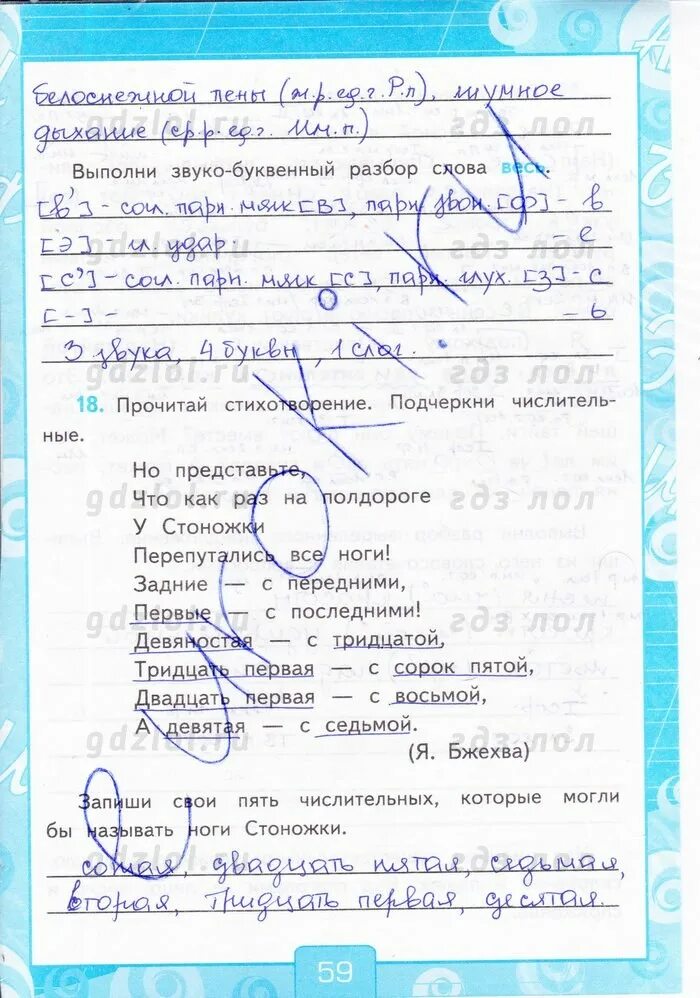 белоснежной пены (ж.р. ед.ч. Р.п), шумное
дыхание (ср.р. ед.ч. Им.п.)
Выполни звуко-буквенный разбор слова весь.
[в'] - согл. парн. мягк [в], парн. звон. [ф] - в
[э] - гл. удар. - е
[с'] - согл. парн. мягк [с], парн. глух. [з] - с
[-] - - ь
3 звука, 4 буквы, 1 слог.
18. Прочитай стихотворение. Подчеркни числитель-
ные.
Но представьте,
Что как раз на полдороге
У Стоножки
Перепутались все ноги!
Задние — с передними,
Первые — с последними!
Девяностая — с тридцатой,
Тридцать первая — с сорок пятой,
Двадцать первая — с восьмой,
А девятая — с седьмой.
(Я. Бжехва)
Запиши свои пять числительных, которые могли
бы называть ноги Стоножки.
сотая, двадцать пятая, седьмая,
вторая, тридцать первая, десятая.
59
gdzlol.ru
гдз лол